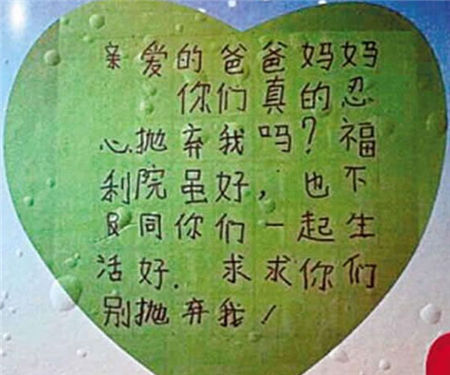 亲爱的爸爸妈妈
你们真的忍
心抛弃我吗？福
利院虽好，也下
及同你们一起生
活好．求求你们
别抛弃我！